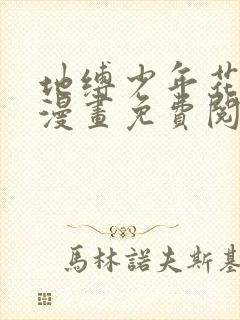 地缚少年花
漫畫免費閱
馬林諾夫斯基